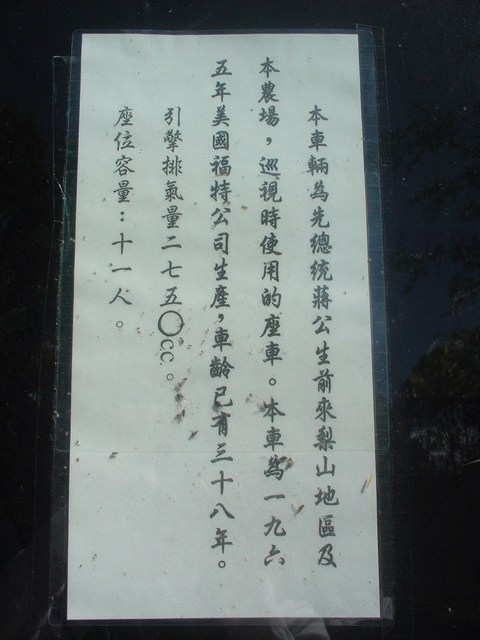 本車輛為先總統蔣公生前來梨山地區及
本農場，巡視時使用的座車。本車為一九六
五年美國福特公司生產，車齡已有三十八年。
引擎排氣量二七五〇cc。
座位容量：十一人。